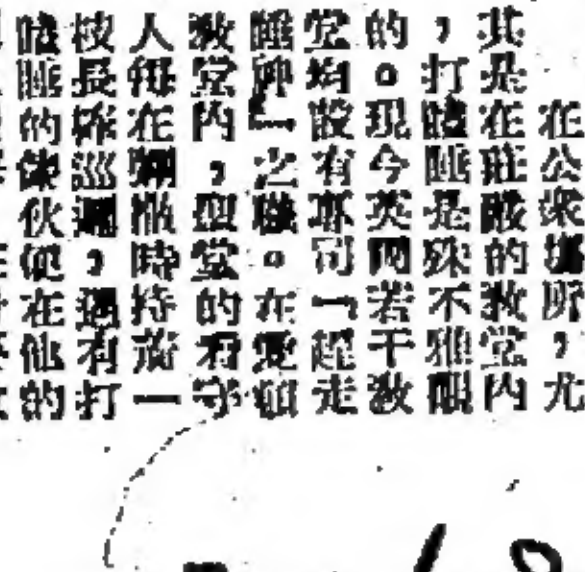 在公衆場所，尤
其是在莊嚴的教堂內
，打瞌睡是殊不雅觀
的。現今英國若干教
堂均設有專司「趕走
睡神」之職。在愛頓
教堂內，堂的看守
人每在彌撒時持着一
枝長棒巡邏，遇有打
瞌睡的傢伙便在他的